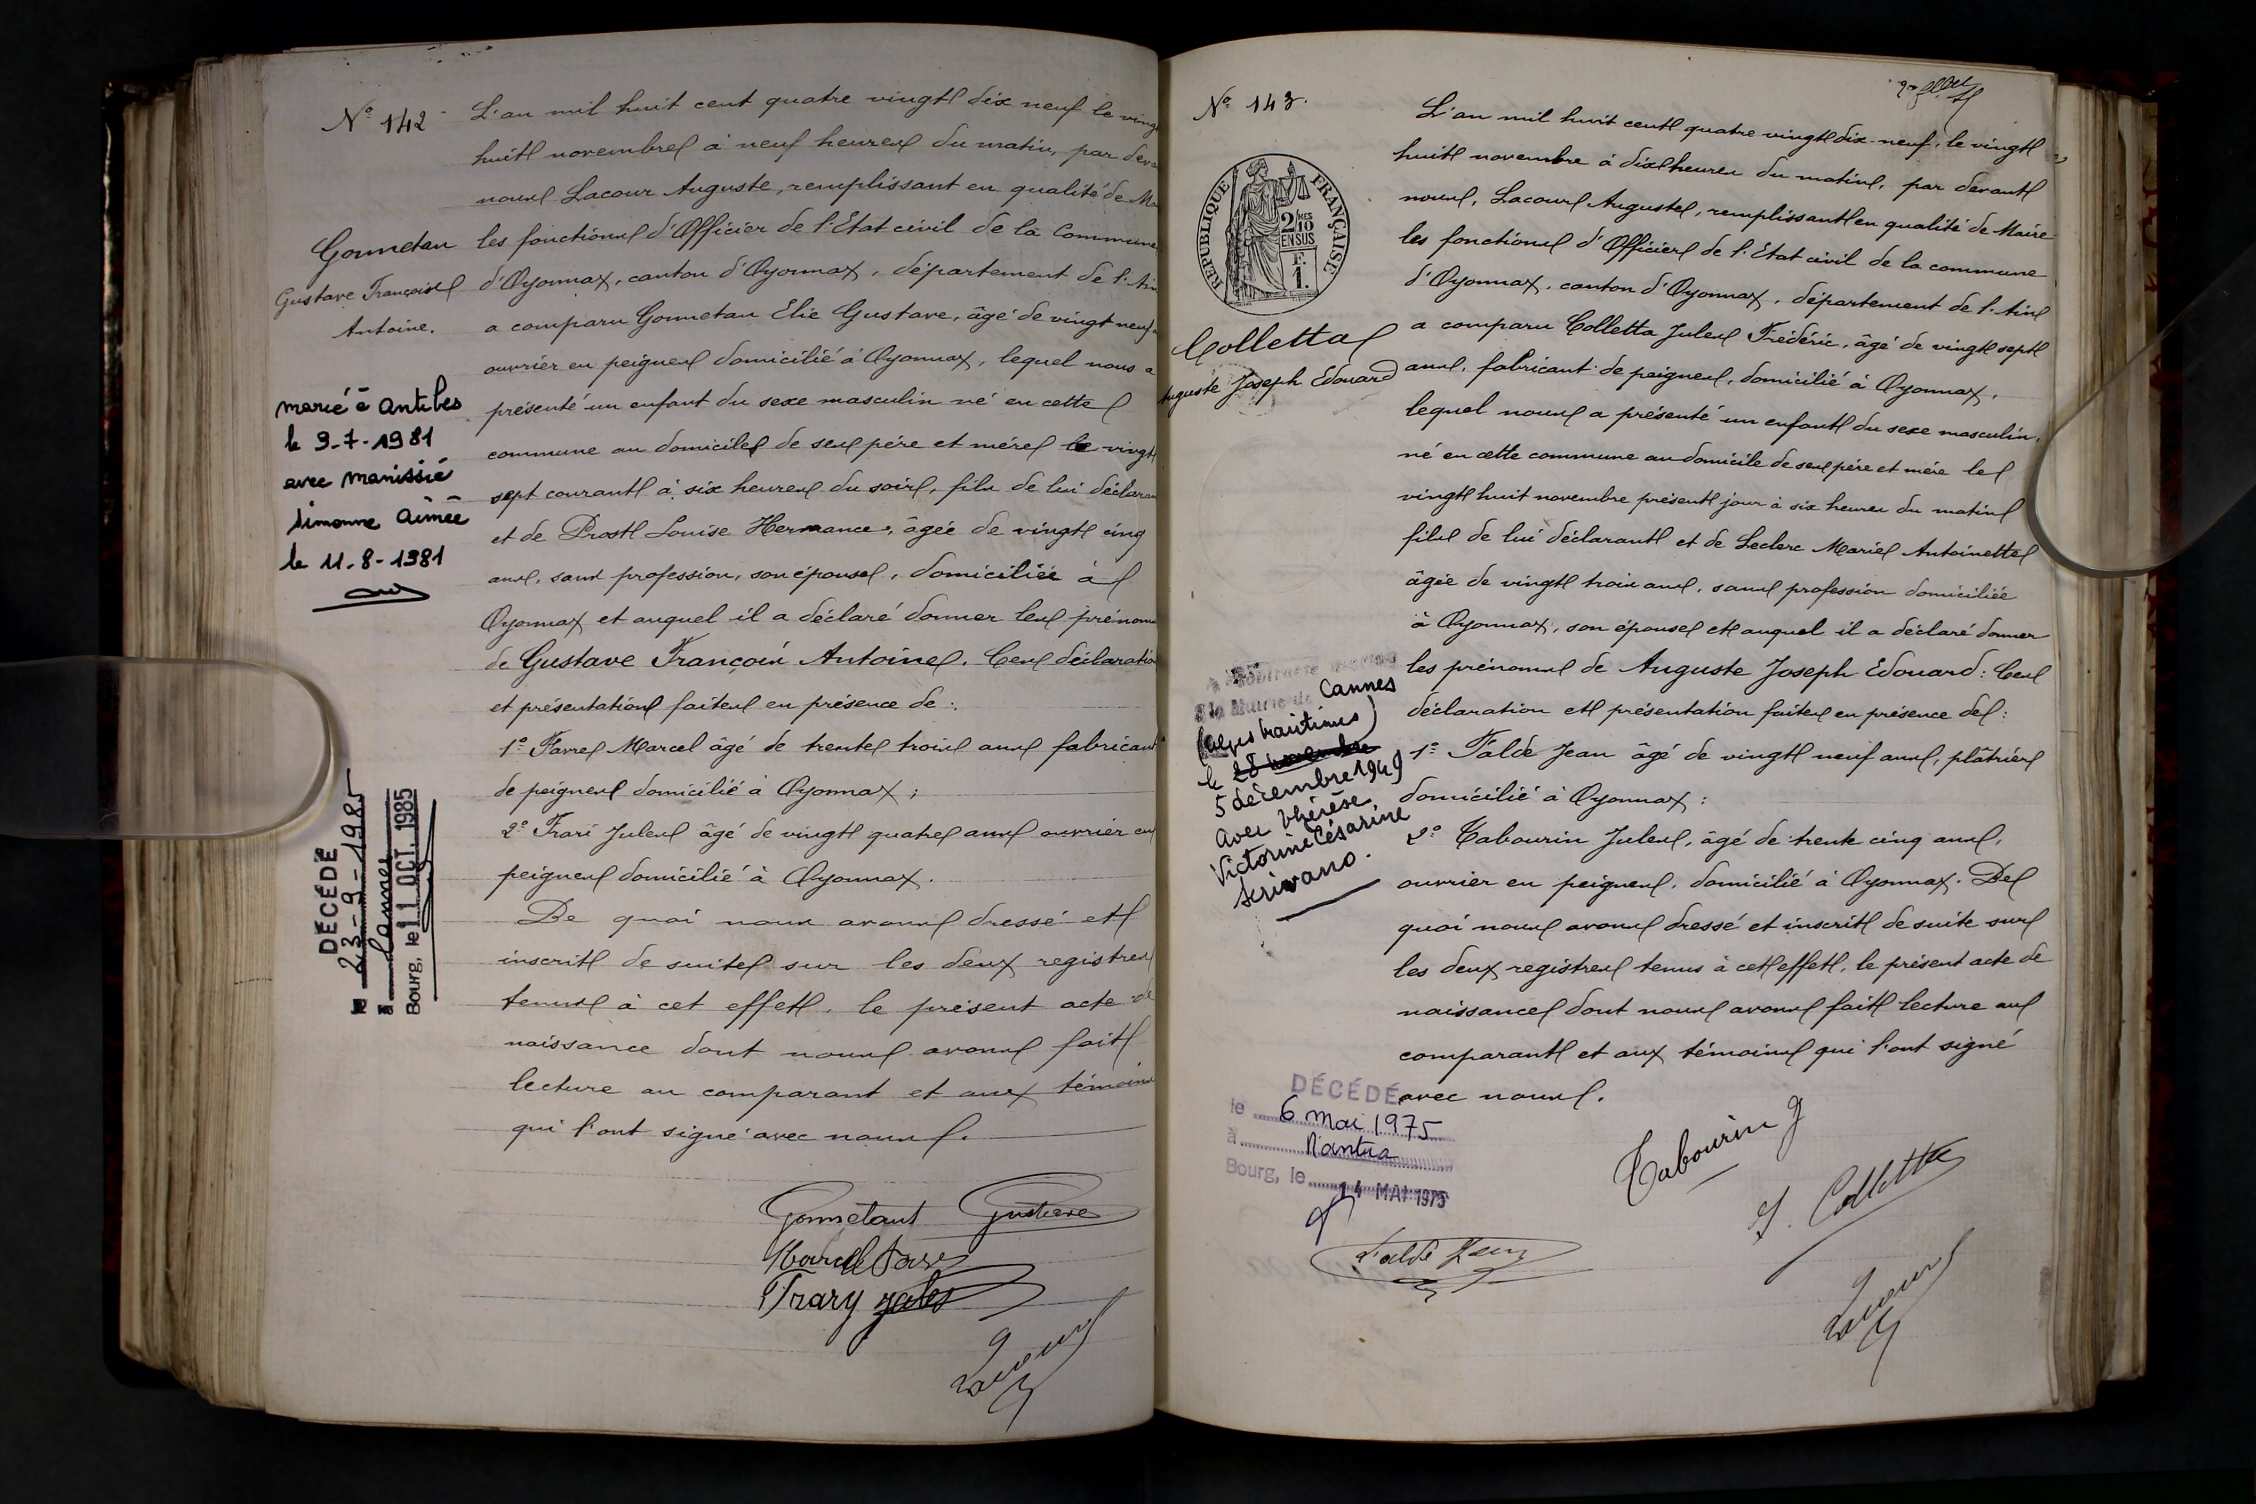 Nº 142
Gonnetan
Gustave François
Antoine.
marié à Antibes
le 9-7-1981
avec Manissié
Simonne Aimée
le 11-8-1981
DÉCÉDÉ
le 23-9-1985
à Cannes
Bourg, le 11 OCT. 1985
L'an mil huit cent quatre vingt dix neuf le vingt
huit novembre à neuf heures du matin, par devant
nous Lacour Auguste, remplissant en qualité de Ma
les fonctions d'Officier de l'Etat civil de la Commune
d'Oyonnax, canton d'Oyonnax, département de l'Ain
a comparu Gonnetan Elie Gustave, âgé de vingt neuf
ouvrier en peignes domicilié à Oyonnax, lequel nous a
présenté un enfant du sexe masculin né en cette
commune au domicile de ses père et mère le vingt
sept courant à six heures du soir, fils de lui déclarant
et de Prost Louise Hermance, âgée de vingt cinq
ans, sans profession, son épouse, domiciliée à
Oyonnax et auquel il a déclaré donner les prénoms
de Gustave François Antoine. Ces déclaration
et présentation faites en présence de :
1º Favre Marcel âgé de trente trois ans fabricant
de peignes domicilié à Oyonnax ;
2º Frari Jules âgé de vingt quatre ans ouvrier en
peignes domicilié à Oyonnax.
De quoi nous avons dressé et
inscrit de suite sur les deux registres
tenus à cet effet, le présent acte de
naissance dont nous avons fait
lecture au comparant et aux témoins
qui l'ont signé avec nous.
Gonnetant Gustave
Marcel Favre
Frary Jules
Lacour
Nº 143.
RÉPUBLIQUE FRANÇAISE
2/10 MES
EN SUS
F.
1.
Colletta
Auguste Joseph Edouard
à la Mairie de Cannes
(Alpes Maritimes)
le 28 novembre
5 décembre 1949
avec Thérèse
Victorine Césarine
Scrivano.
DÉCÉDÉ
le 6 mai 1975
à Nantua
Bourg, le 14 MAI 1975
L'an mil huit cent quatre vingt dix-neuf, le vingt
huit novembre à dix heures du matin, par devant
nous, Lacour Auguste, remplissant en qualité de Maire
les fonctions d'Officier de l'Etat civil de la commune
d'Oyonnax, canton d'Oyonnax, département de l'Ain
a comparu Colletta Jules Frédéric, âgé de vingt sept
ans, fabricant de peignes, domicilié à Oyonnax,
lequel nous a présenté un enfant du sexe masculin,
né en cette commune au domicile de ses père et mère le
vingt huit novembre présent jour à six heures du matin
fils de lui déclarant et de Leclerc Marie Antoinette
âgée de vingt trois ans, sans profession domiciliée
à Oyonnax, son épouse et auquel il a déclaré donner
les prénoms de Auguste Joseph Edouard : Ces
déclaration et présentation faites en présence de :
1º Falde Jean âgé de vingt neuf ans, plâtrier
domicilié à Oyonnax ;
2º Tabourin Jules, âgé de trente cinq ans,
ouvrier en peignes, domicilié à Oyonnax. De
quoi nous avons dressé et inscrit de suite sur
les deux registres tenus à cet effet, le présent acte de
naissance dont nous avons fait lecture au
comparant et aux témoins qui l'ont signé
avec nous.
Tabourin J
J. Colletta
Falde Jean
Lacour